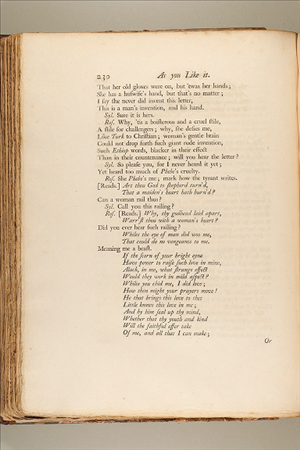 230 As you Like it.
That her old gloves were on, but 'twas her hands;
She has a huswife's hand, but that's no matter;
I say she never did invent this letter,
This is a man's invention, and his hand.
Syl. Sure it is hers.
Ros. Why, 'tis a boisterous and a cruel stile,
A stile for challengers; why, she defies me,
Like Turk to Christian; woman's gentle brain
Could not drop forth such giant rude invention,
Such Ethiop words, blacker in their effect
Than in their countenance; will you hear the letter?
Syl. So please you, for I never heard it yet;
Yet heard too much of Phebe's cruelty.
Ros. She Phebe's me; mark how the tyrant writes.
[Reads.] Art thou God to shepherd turn'd,
That a maiden's heart hath burn'd?
Can a woman rail thus?
Syl. Call you this railing?
Ros. [Reads.] Why, thy godhead laid apart,
Warr'st thou with a woman's heart?
Did you ever hear such railing?
Whiles the eye of man did woo me,
That could do no vengeance to me.
Meaning me a beast.
If the scorn of your bright eyne
Have power to raise such love in mine,
Alack, in me, what strange effect
Would they work in mild aspect?
Whiles you chid me, I did love;
How then might your prayers move?
He that brings this love to thee
Little knows this love in me;
And by him seal up thy mind,
Whether that thy youth and kind
Will the faithful offer take
Of me, and all that I can make;
Or